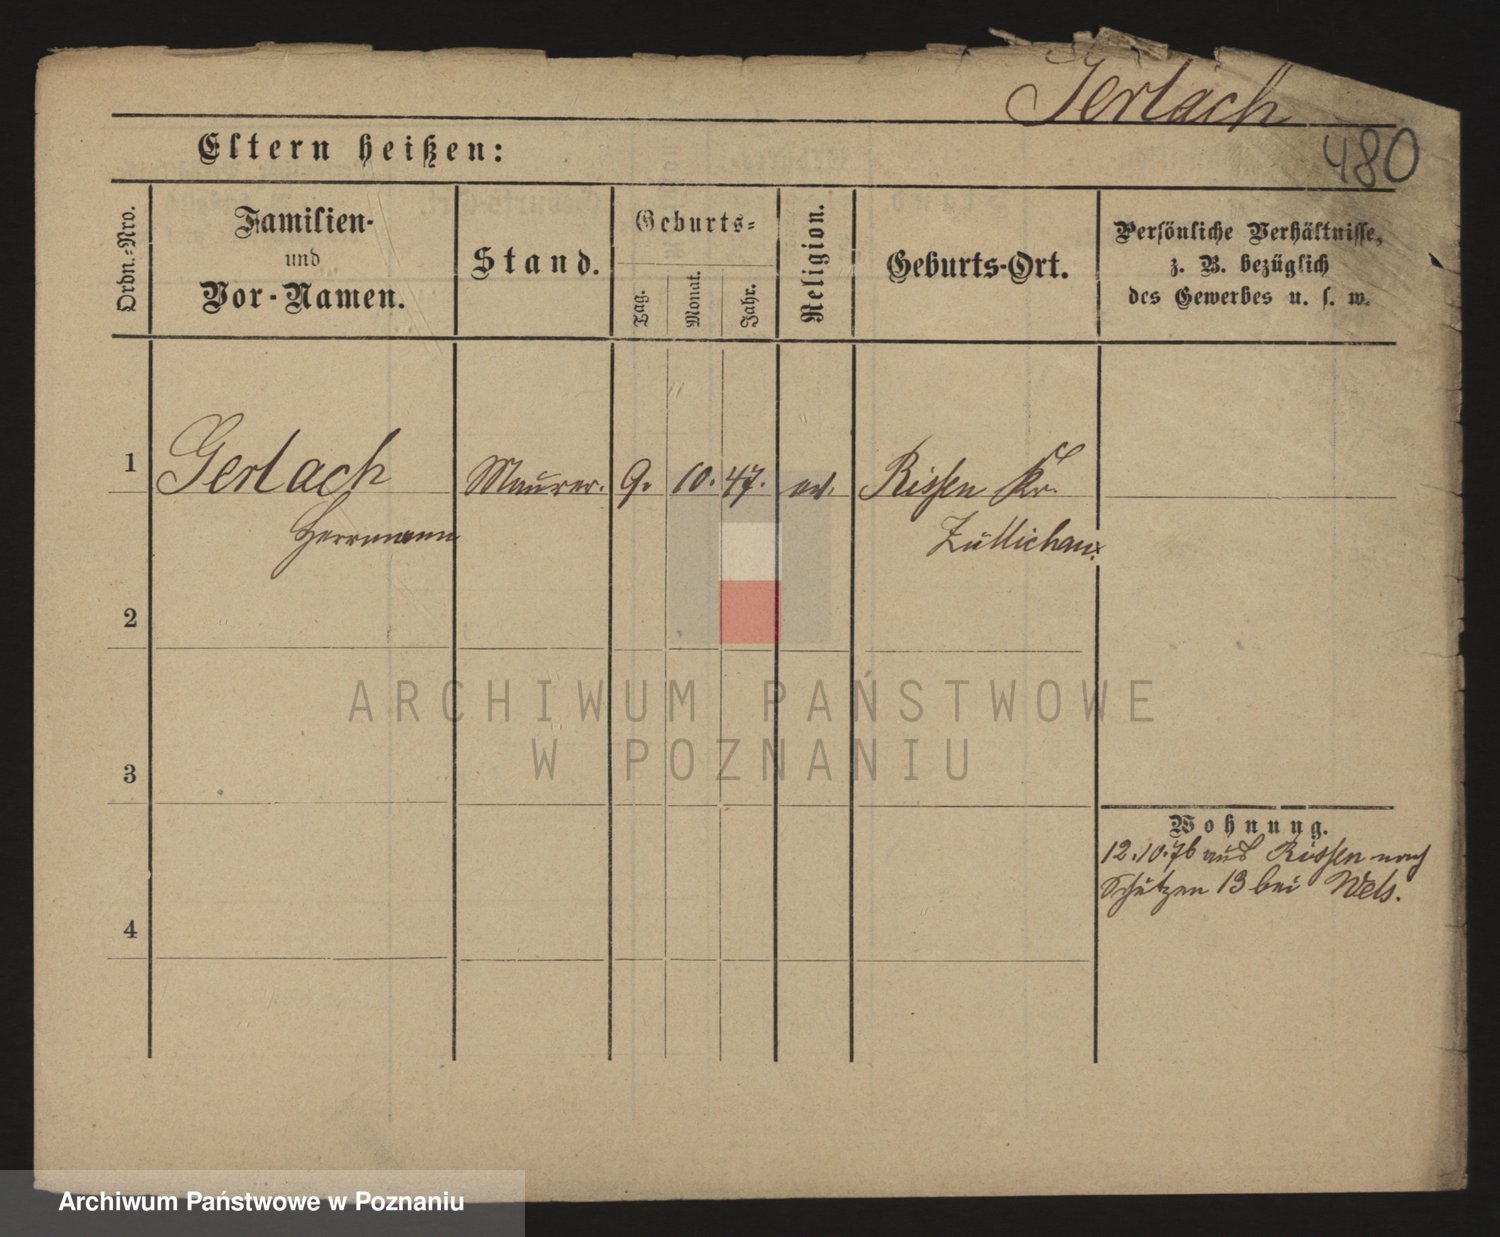 Gerlach
480
Eltern heißen:
Ordn.-Nro.
Familien-
und
Vor-Namen.
Stand.
Geburts-
Tag.
Monat.
Jahr.
Religion.
Geburts-Ort.
Persönliche Verhältnisse,
z. B. bezüglich
des Gewerbes u. s. w.
1 Gerlach Maurer. 9. 10. 47. ev. Rissen Kr.
Herrmann Züllichau.
2
3
4
Wohnung.
12.10.76 aus Rissen nach
Schützen 13 bei Wels.
ARCHIWUM PAŃSTWOWE
W POZNANIU
Archiwum Państwowe w Poznaniu